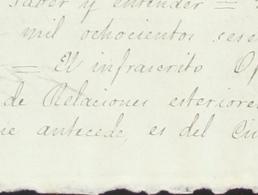 saber y entender =
mil ochocientos sese
= El infrascrito Of
de Relaciones esteriore
ue antecede, es del Ciu